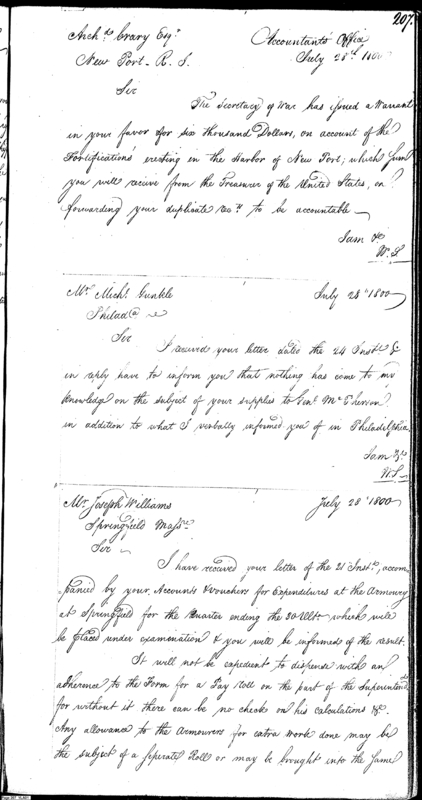 207.
Archd. Crary Esqr.
Accountants Office
New Port - R. I.
July 28th. 1800
Sir
The Secretary of War has issued a Warrant
in your favor for six thousand Dollars, on account of the
Fortifications erecting in the Harbor of New Port; which sum
you will receive from the Treasurer of the United States, on
forwarding your duplicate rects. to be accountable
I am &c
W. S.
Mr. Michl. Gunkle
July 28th 1800
Philada
Sir
I received your letter dated the 24 Inst. &
in reply have to inform you that nothing has come to my
knowledge on the subject of your supplies to Genl. McPherson
in addition to what I verbally informed you of in Philadelphia
I am &c
W. S.
Mr. Joseph Williams
July 28th 1800
Springfield Massr.
Sir
I have received your letter of the 21 Inst., accom
panied by your Accounts & Vouchers for Expenditures at the Armoury
at Springfield for the Quarter ending the 30 Ulto. which will
be placed under examination & you will be informed of the result.
It will not be expedient to dispense with an
adherence to the Form for a Pay Roll on the part of the Superintendt
for without it there can be no check on his calculations &c.
Any allowance to the Armourers for extra work done may be
the subject of a seperate Roll or may be brought into the same